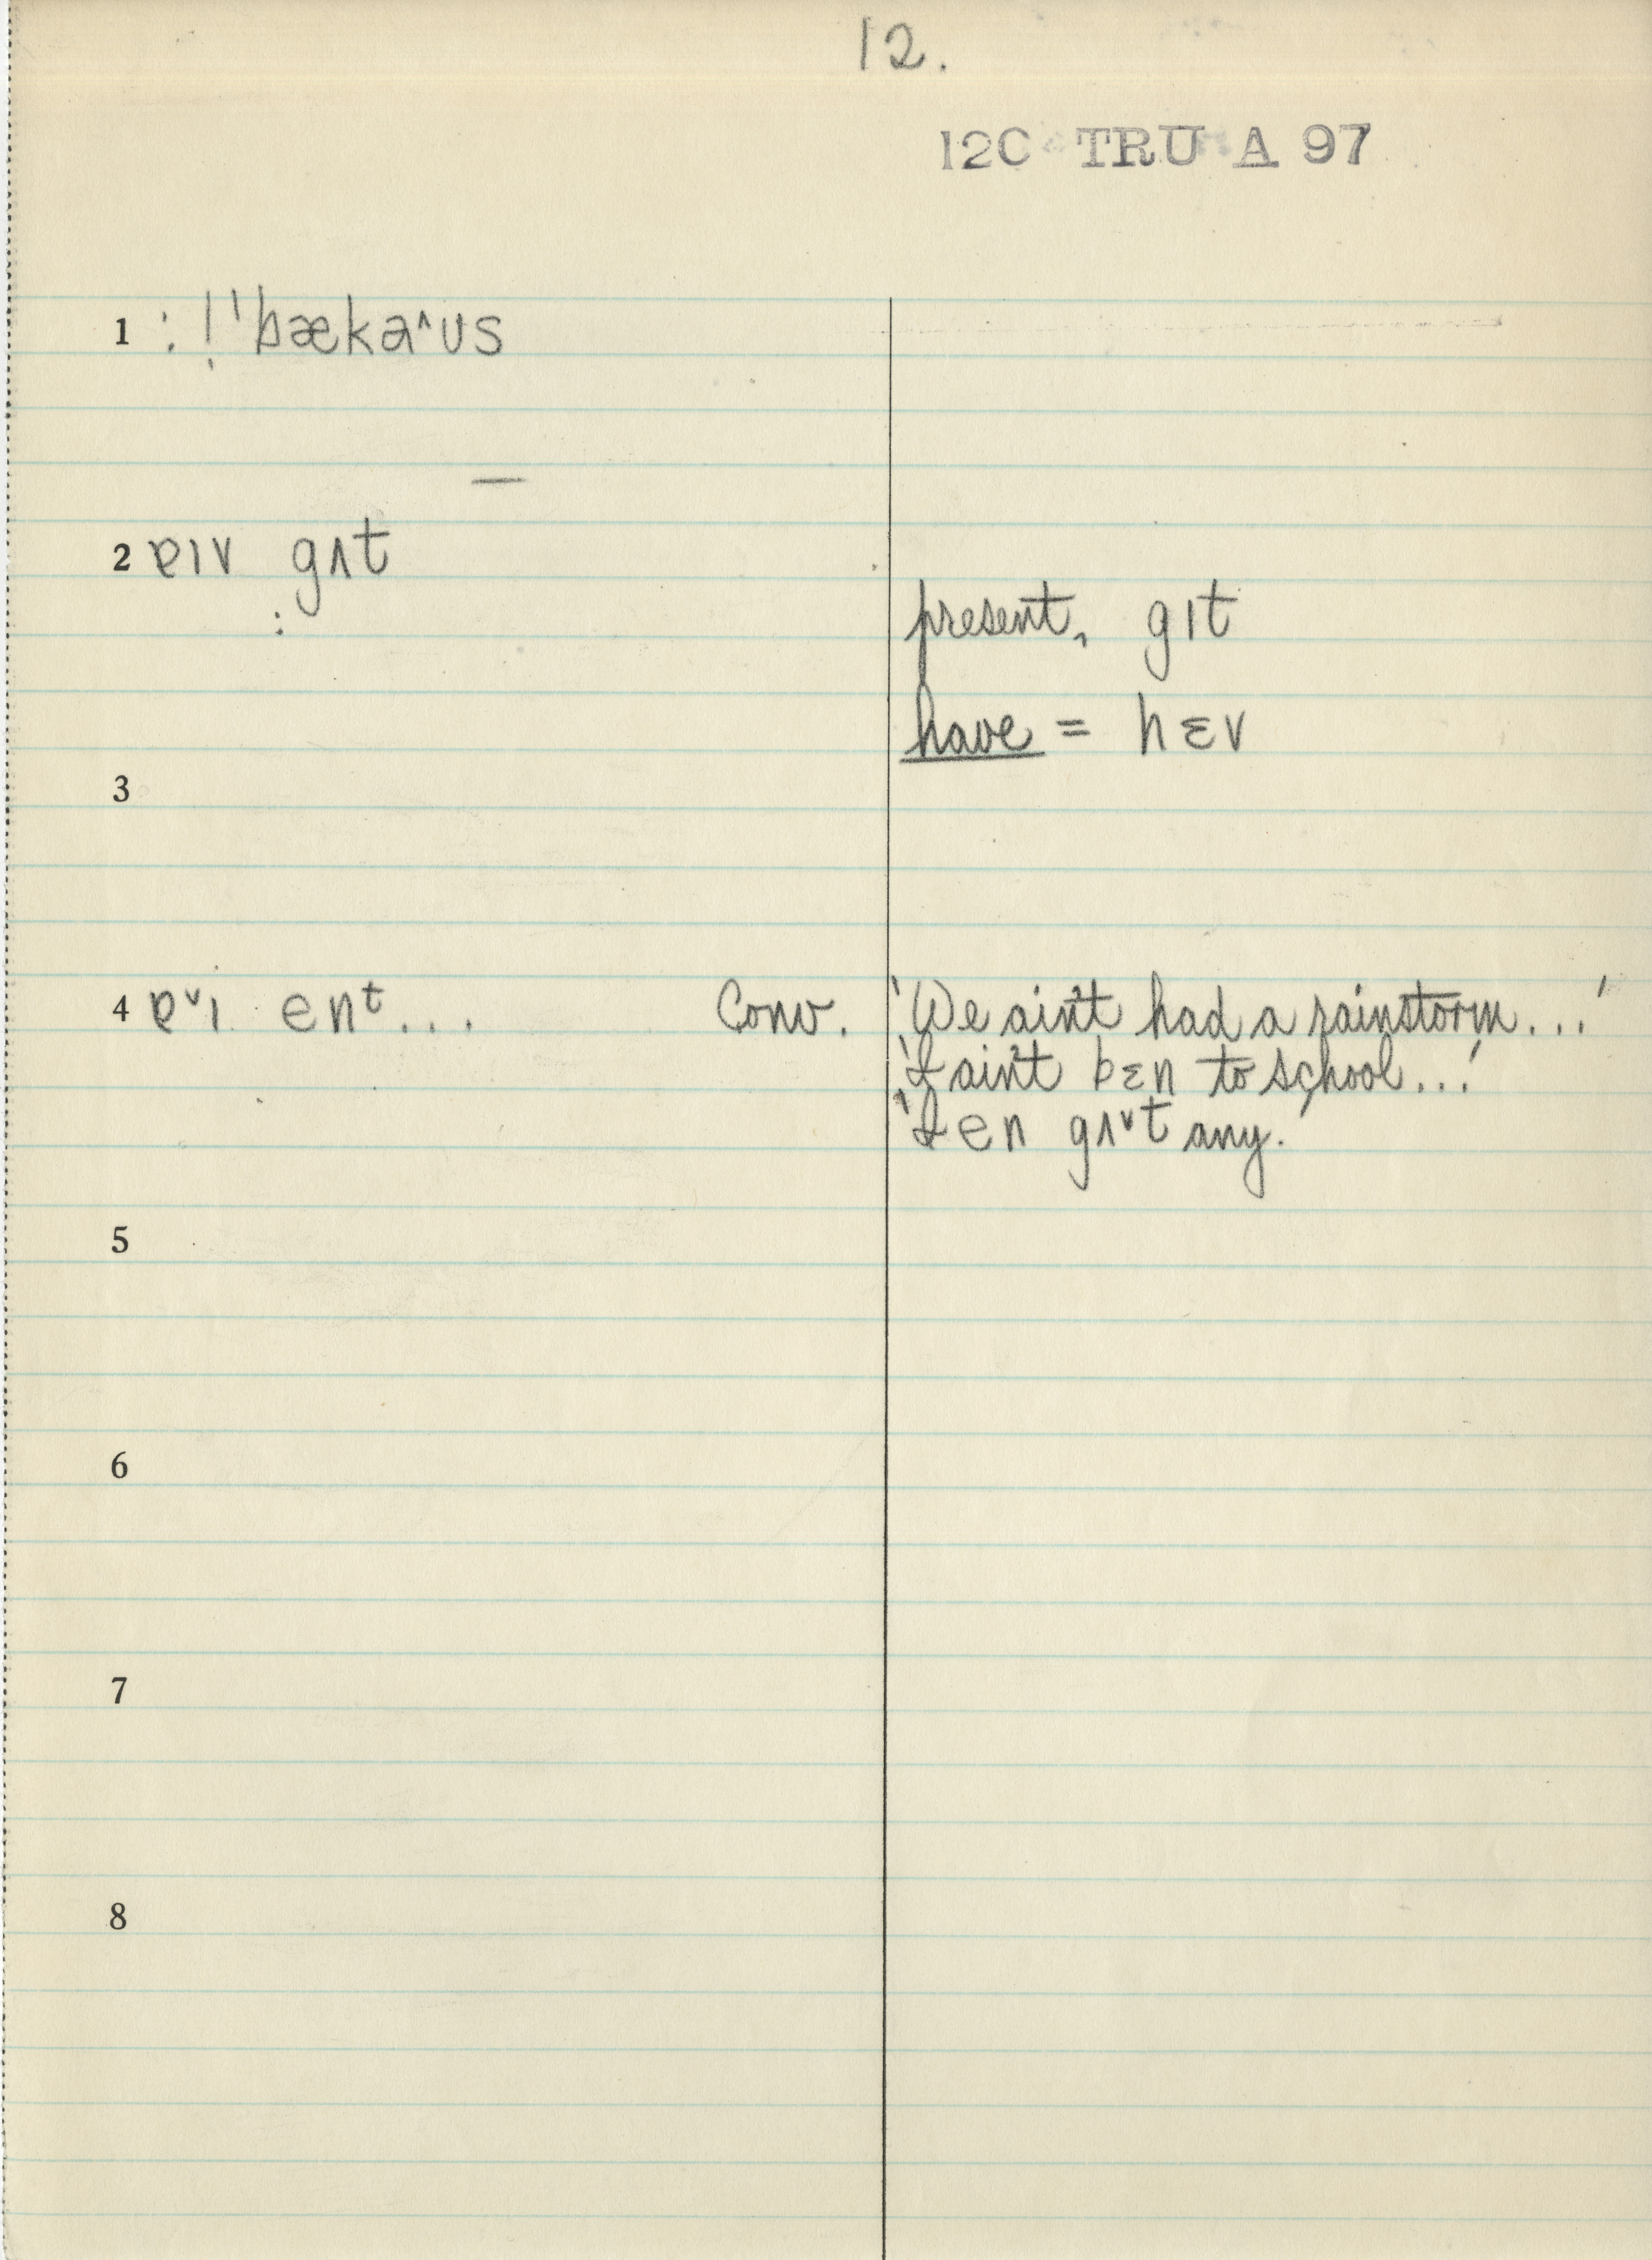 12.
12C TRU A 97
1 : ! ˈbækaˆʊs
—
2 ɐɪv gʌt
:
present, gɪt
have = hɛv
3
4 ɐˇɪ enᵗ... Conv. 'We ain't had a rainstorm...'
'I ain't bɛn to school...'
'I en gʌˇt any.'
5
6
7
8